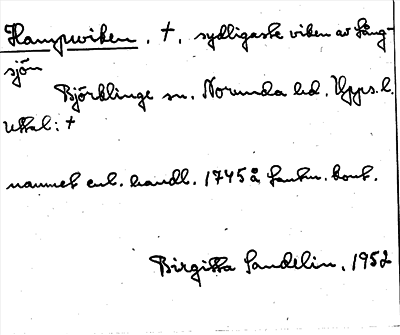 Hampviken, †, sydligaste viken av Lång-
sjön
Björklinge sn. Norunda hd. Upps. l.
Uttal: †
namnet enl. handl. 1745 å Lantm. kont.
Birgitta Sandelin, 1952